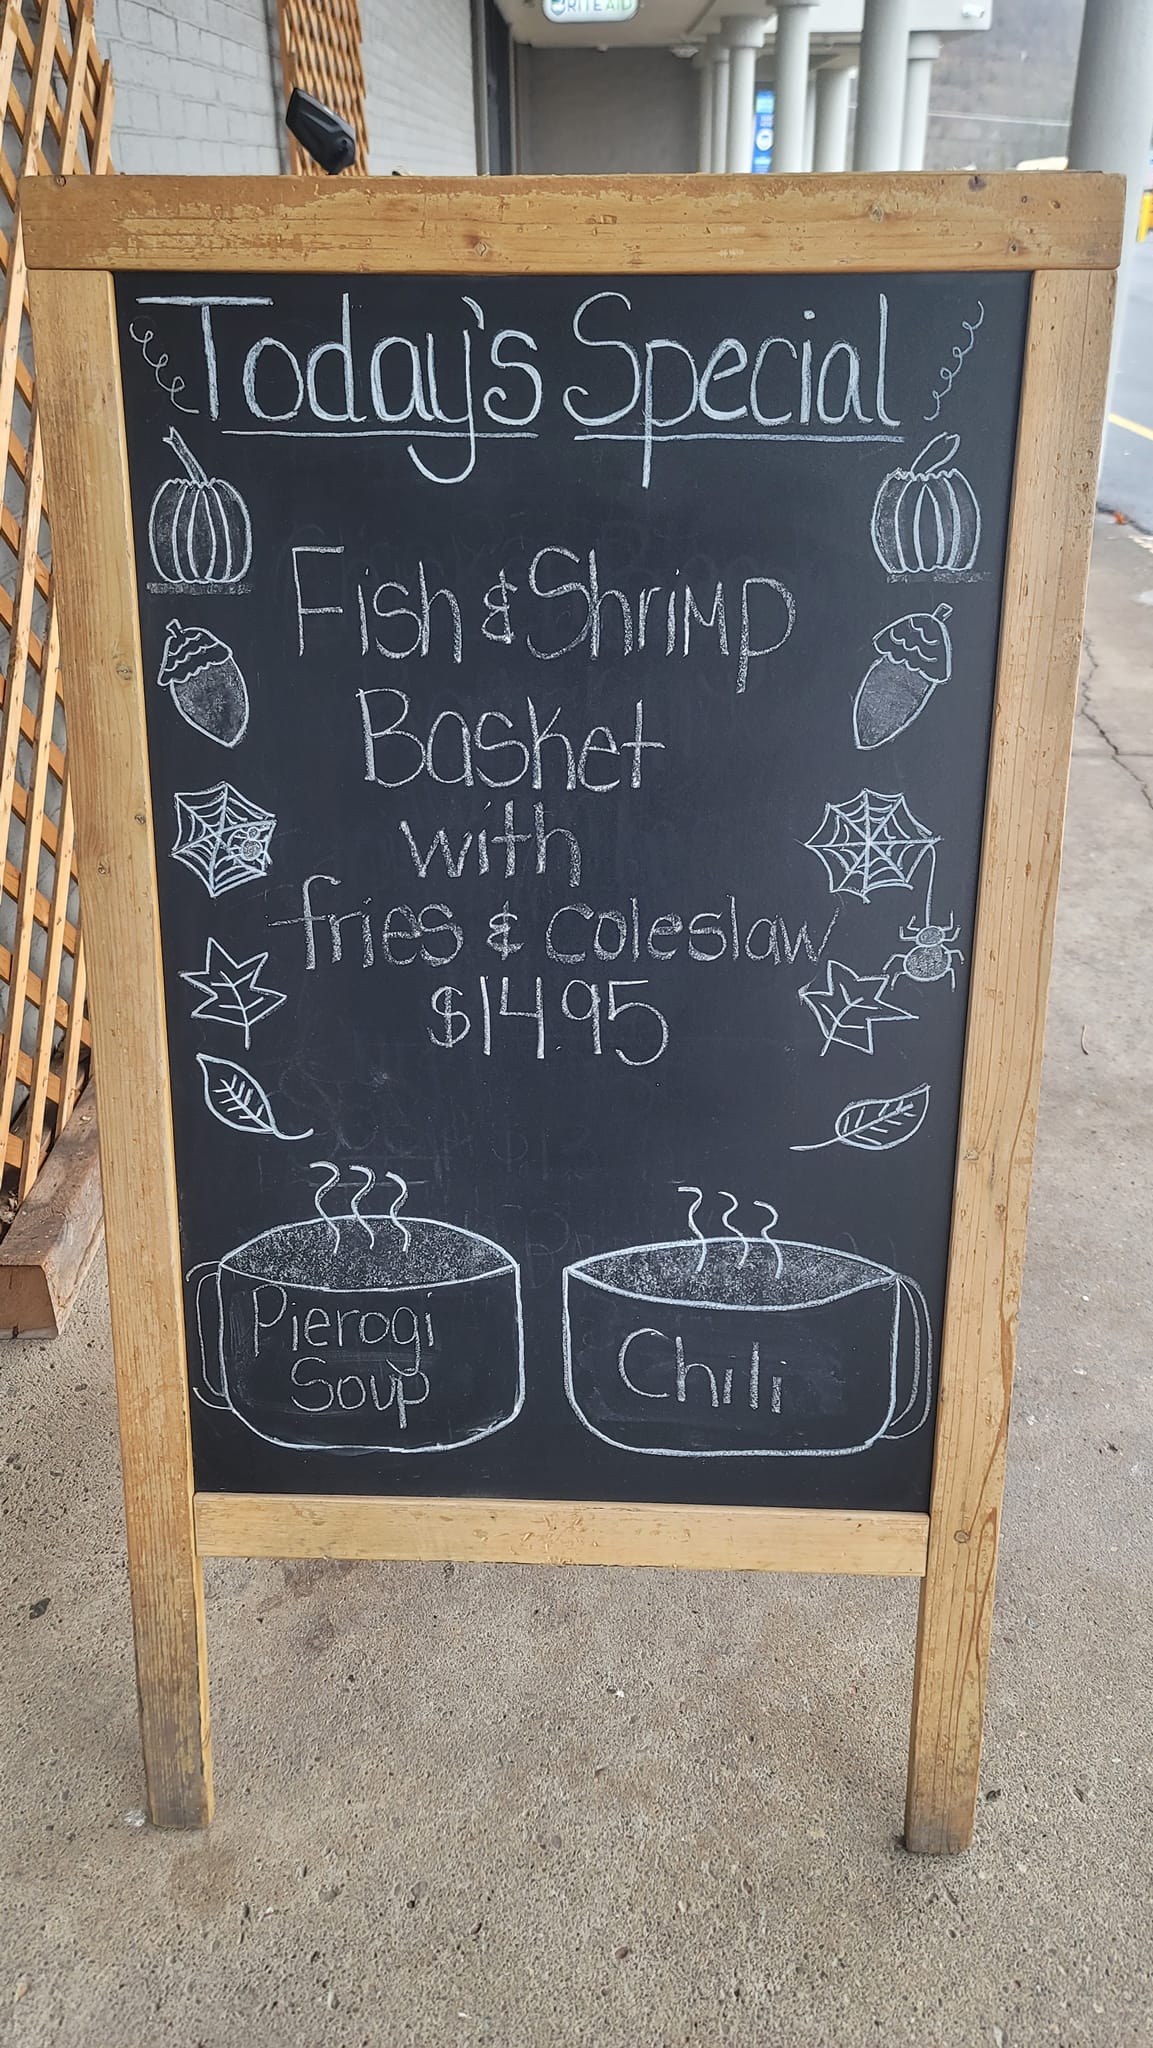 RITE AID
Today's Special
Fish & Shrimp
Basket
with
fries & coleslaw
$14.95
Pierogi
Soup
Chili